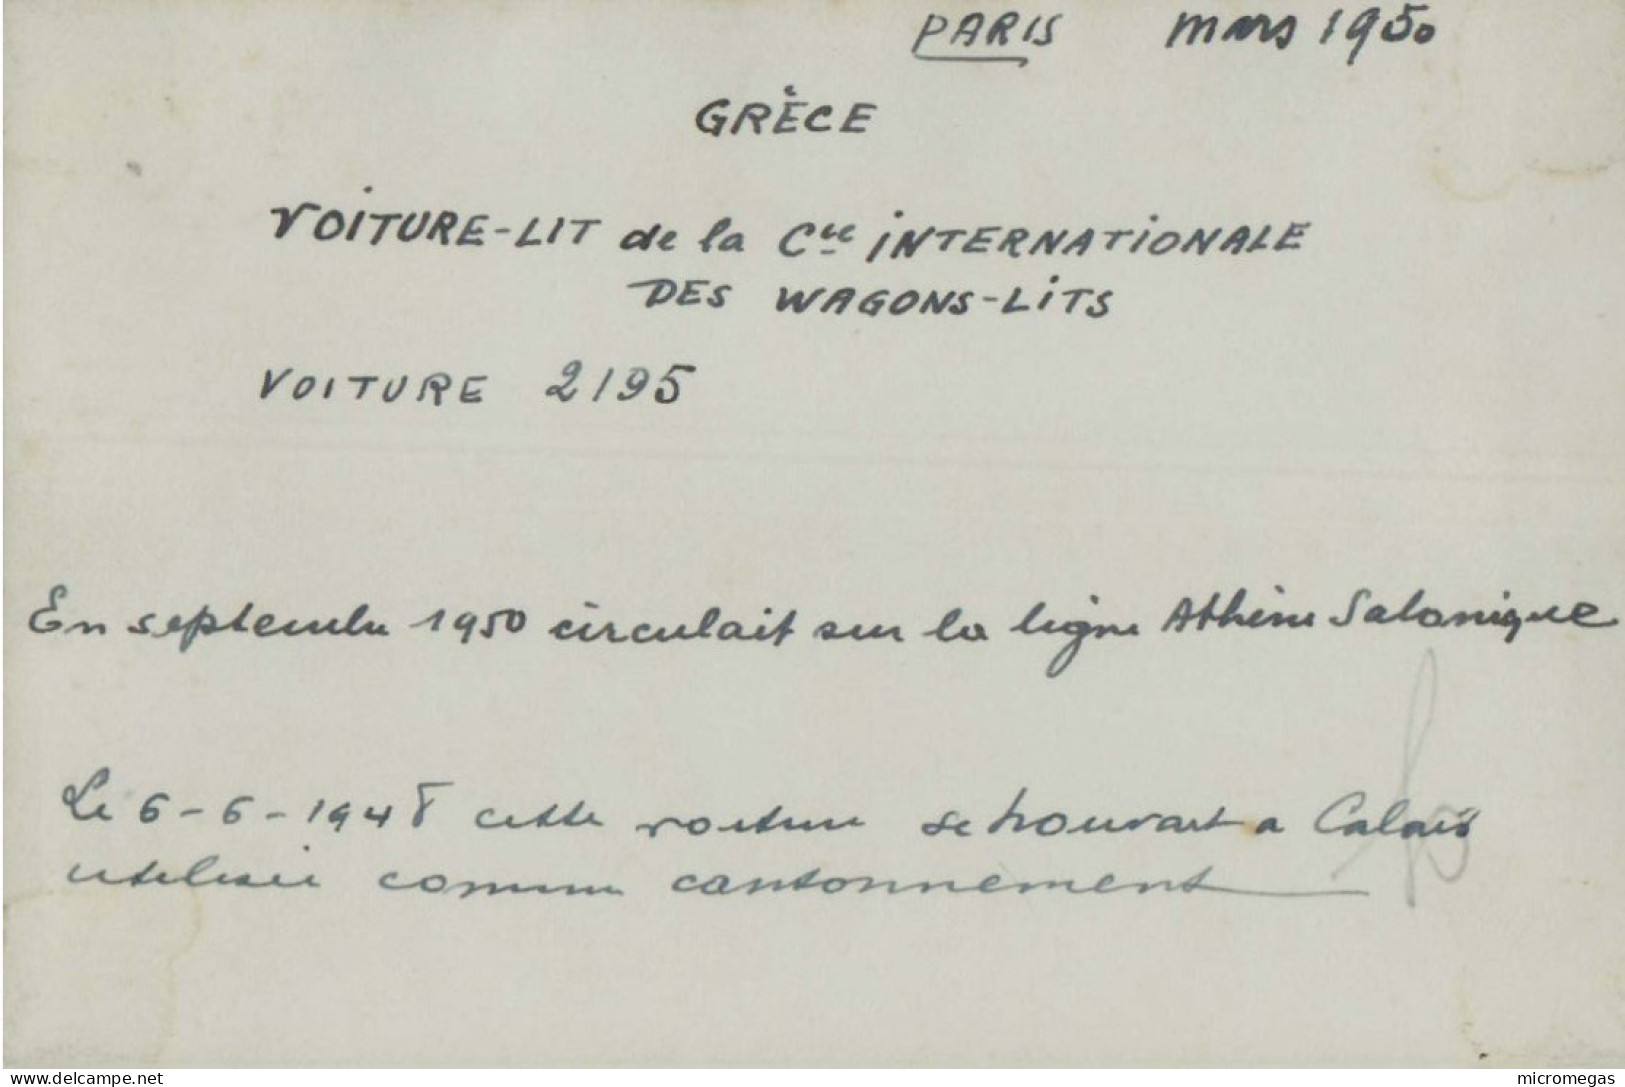 PARIS mars 1950
GRÈCE
VOITURE-LIT de la Cie INTERNATIONALE
DES WAGONS-LITS
VOITURE 2195
En septembre 1950 circulait sur la ligne Athène Salonique
Le 6-6-1948 cette voiture se trouvait a Calais
utilisée comme cantonnement
www.delcampe.net
micromegas